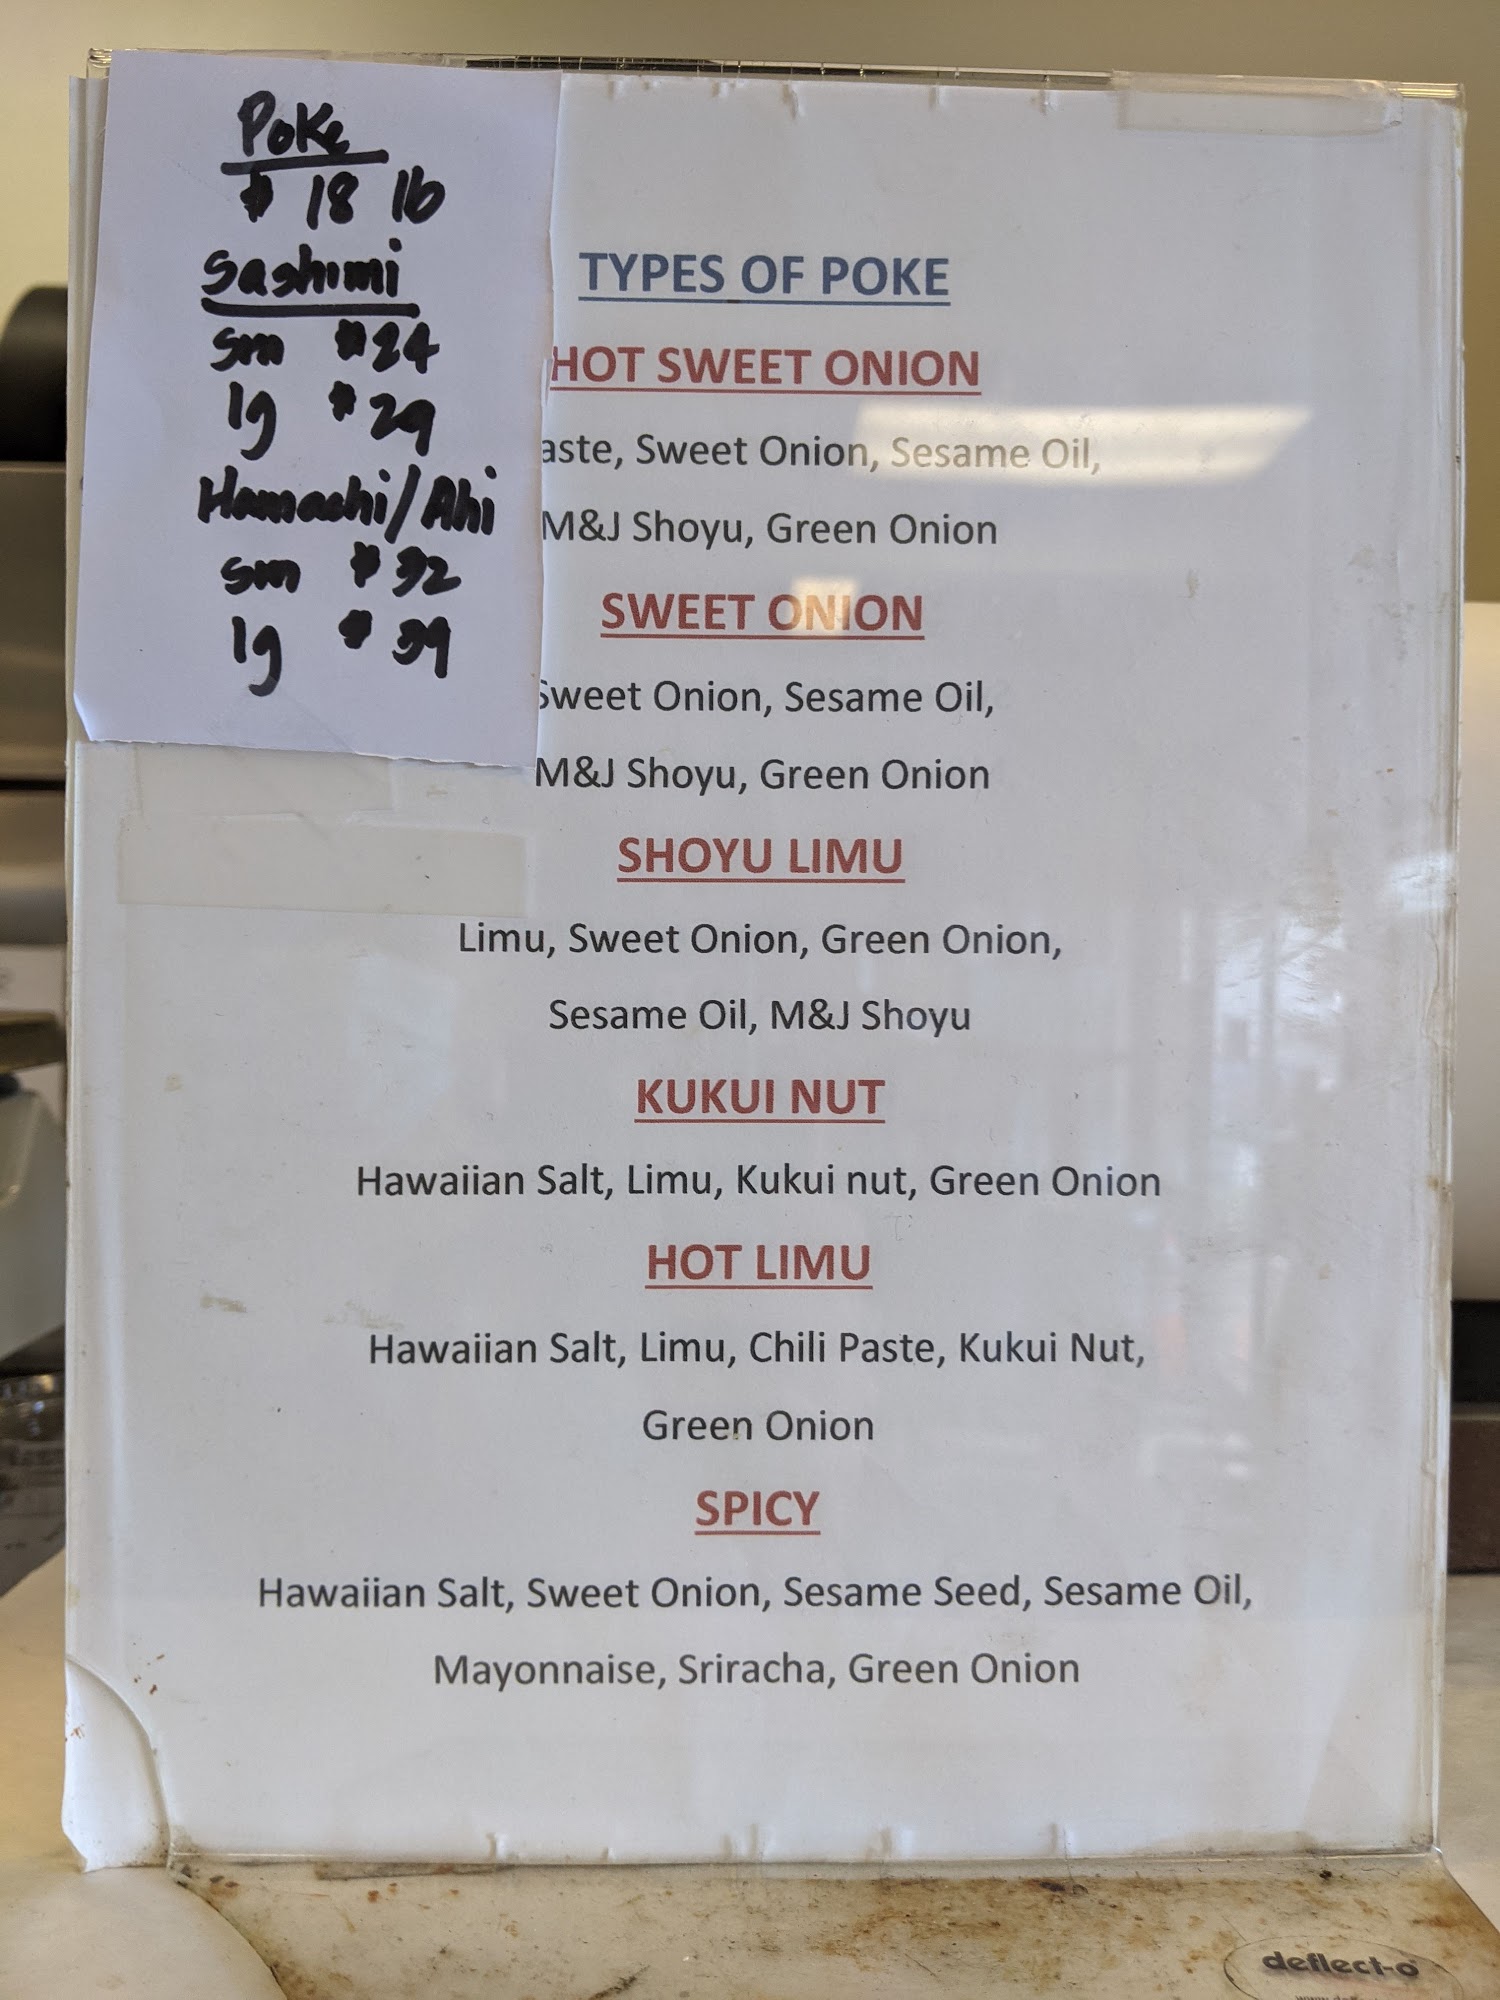 Poke
$ 18 lb
Sashimi
sm $24
lg $29
Hamachi/Ahi
sm $32
lg $39
TYPES OF POKE
HOT SWEET ONION
aste, Sweet Onion, Sesame Oil,
M&J Shoyu, Green Onion
SWEET ONION
Sweet Onion, Sesame Oil,
M&J Shoyu, Green Onion
SHOYU LIMU
Limu, Sweet Onion, Green Onion,
Sesame Oil, M&J Shoyu
KUKUI NUT
Hawaiian Salt, Limu, Kukui nut, Green Onion
HOT LIMU
Hawaiian Salt, Limu, Chili Paste, Kukui Nut,
Green Onion
SPICY
Hawaiian Salt, Sweet Onion, Sesame Seed, Sesame Oil,
Mayonnaise, Sriracha, Green Onion
deflect-o